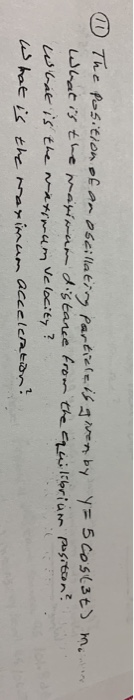 ⑪ The position of an oscillating particle is given by y = 5 cos(3t) m.
What is the maximum distance from the equilibrium position?
What is the maximum velocity?
What is the maximum acceleration?